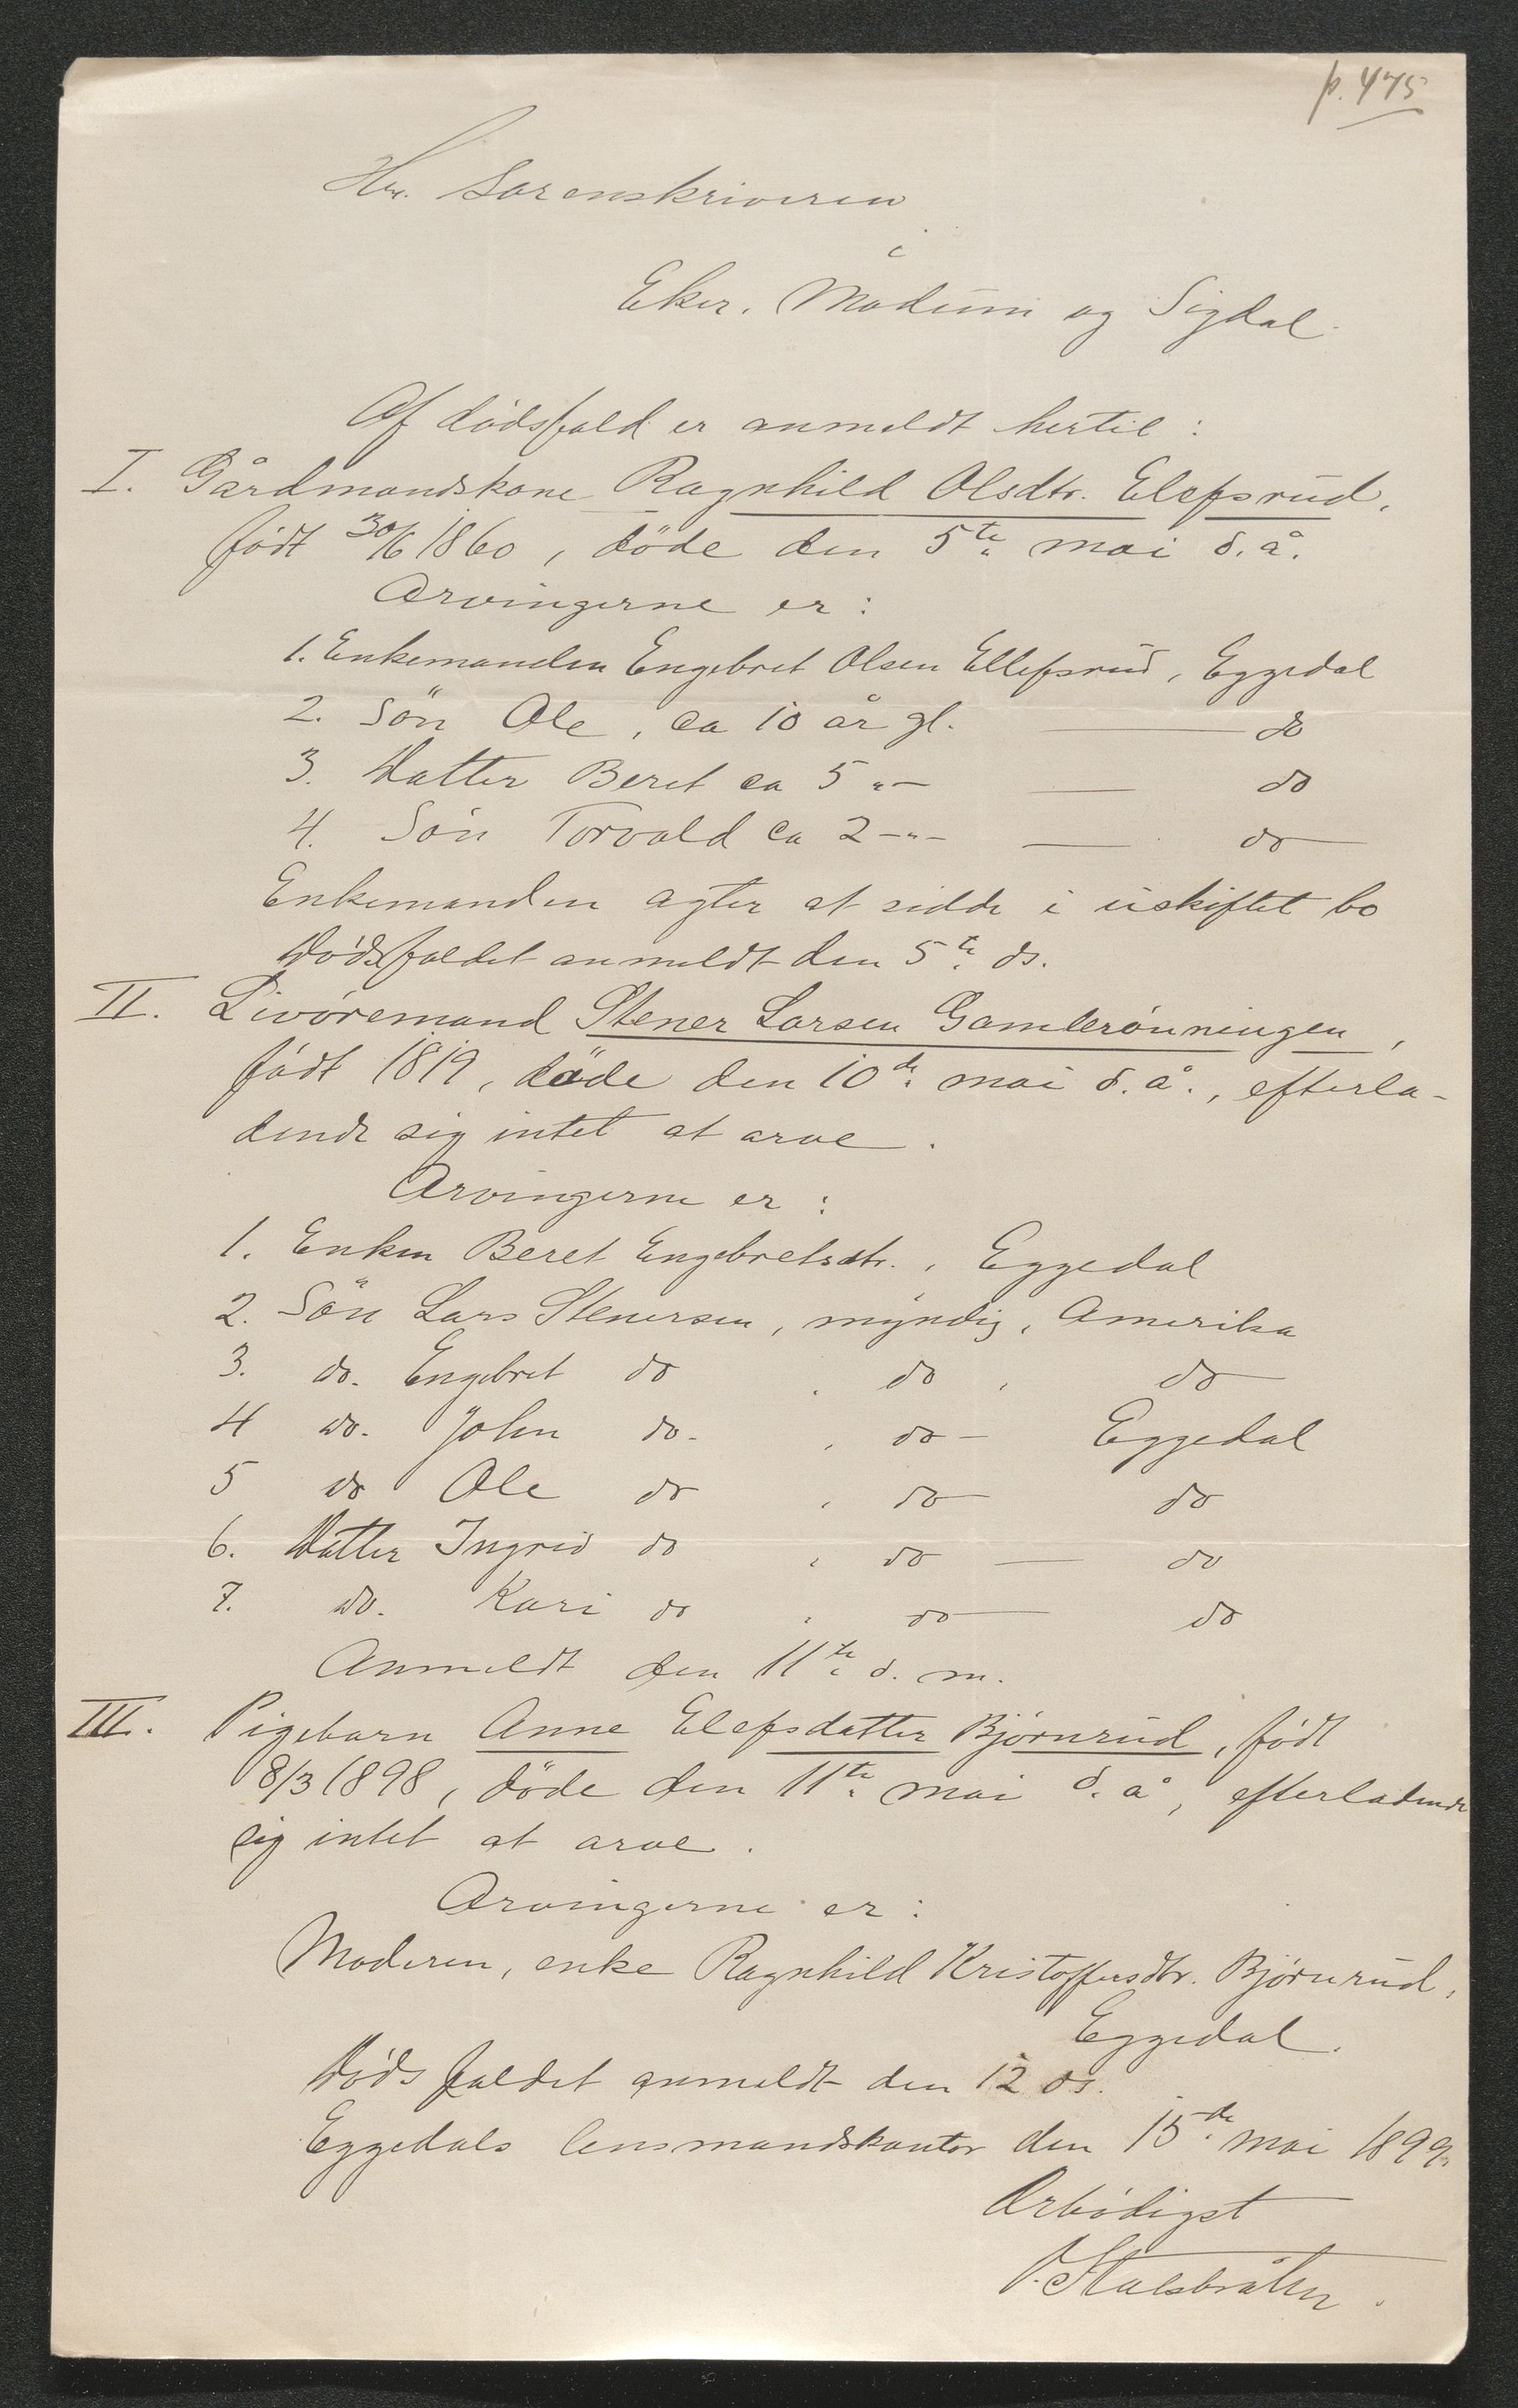 p. 475
Hr. Sorenskriveren
i
Eker, Modum og Sigdal.
Af dödsfald er anmeldt hertil:
I. Gårdmandskone Ragnhild Olsdtr. Elefsrud,
födt 30/6 1860, döde den 5te mai d. å.
Arvingerne er:
1. Enkemanden Engebret Olsen Ellefsrud, Eggedal
2. Sön Ole, ca 10 år gl. — do
3. Datter Beret ca 5 "— — do
4. Sön Torvald ca 2 —"— — do
Enkemanden agter at sidde i uskiftet bo
Dödsfaldet anmeldt den 5te ds.
II. Livöremand Stener Larsen Gamlerönningen,
födt 1819, döde den 10de mai d. å., efterla-
dende sig intet at arve.
Arvingerne er:
1. Enken Beret Engebretsdtr., Eggedal
2. Sön Lars Stenersen, myndig, Amerika
3. do. Engebret do , do , do
4 do. John do. , do — Eggedal
5 do Ole do , do — do
6. Datter Ingrid do , do — do
7. do. Kari do , do — do
Anmeldt den 11te d. m.
III. Pigebarn Anne Elefsdatter Björnrud, födt
8/3 1898, döde den 11te mai d. å, efterladende
sig intet at arve.
Arvingerne er:
Moderen, enke Ragnhild Kristoffersdtr. Björnrud,
Eggedal.
Dödsfaldet anmeldt den 12 ds.
Eggedals lensmandskontor den 15de mai 1899.
Ærbödigst